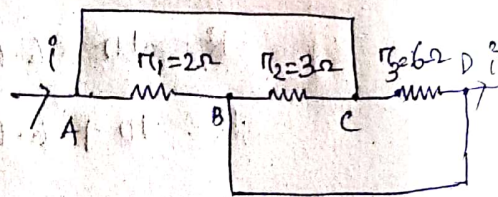 i r₁=2Ω r₂=3Ω r₃=6Ω D i
A B C